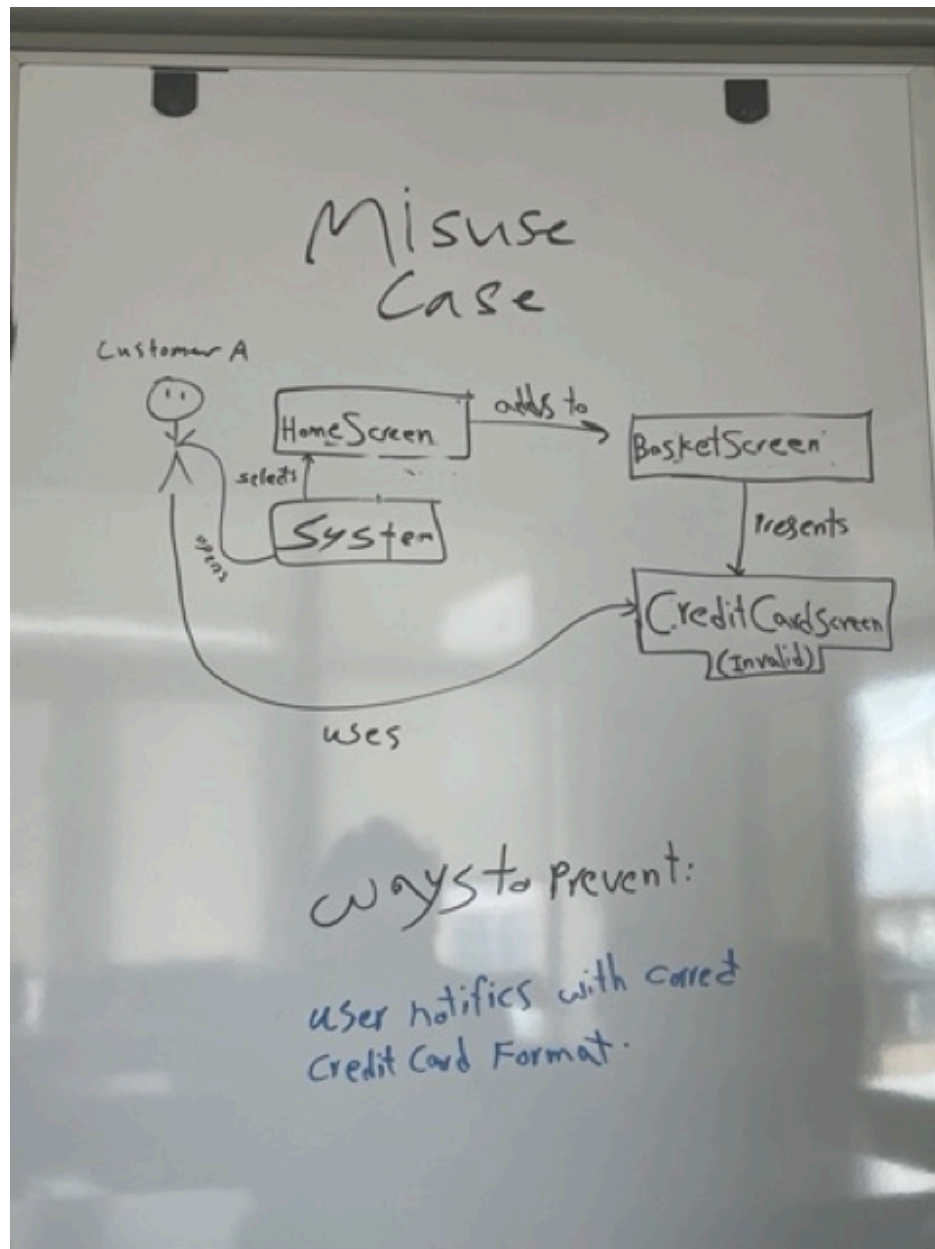 Misuse
Case
Customer A
HomeScreen
adds to
BasketScreen
selects
System
opens
Presents
CreditCardScreen
(Invalid)
uses
ways to Prevent:
user notifies with correct
Credit Card Format.